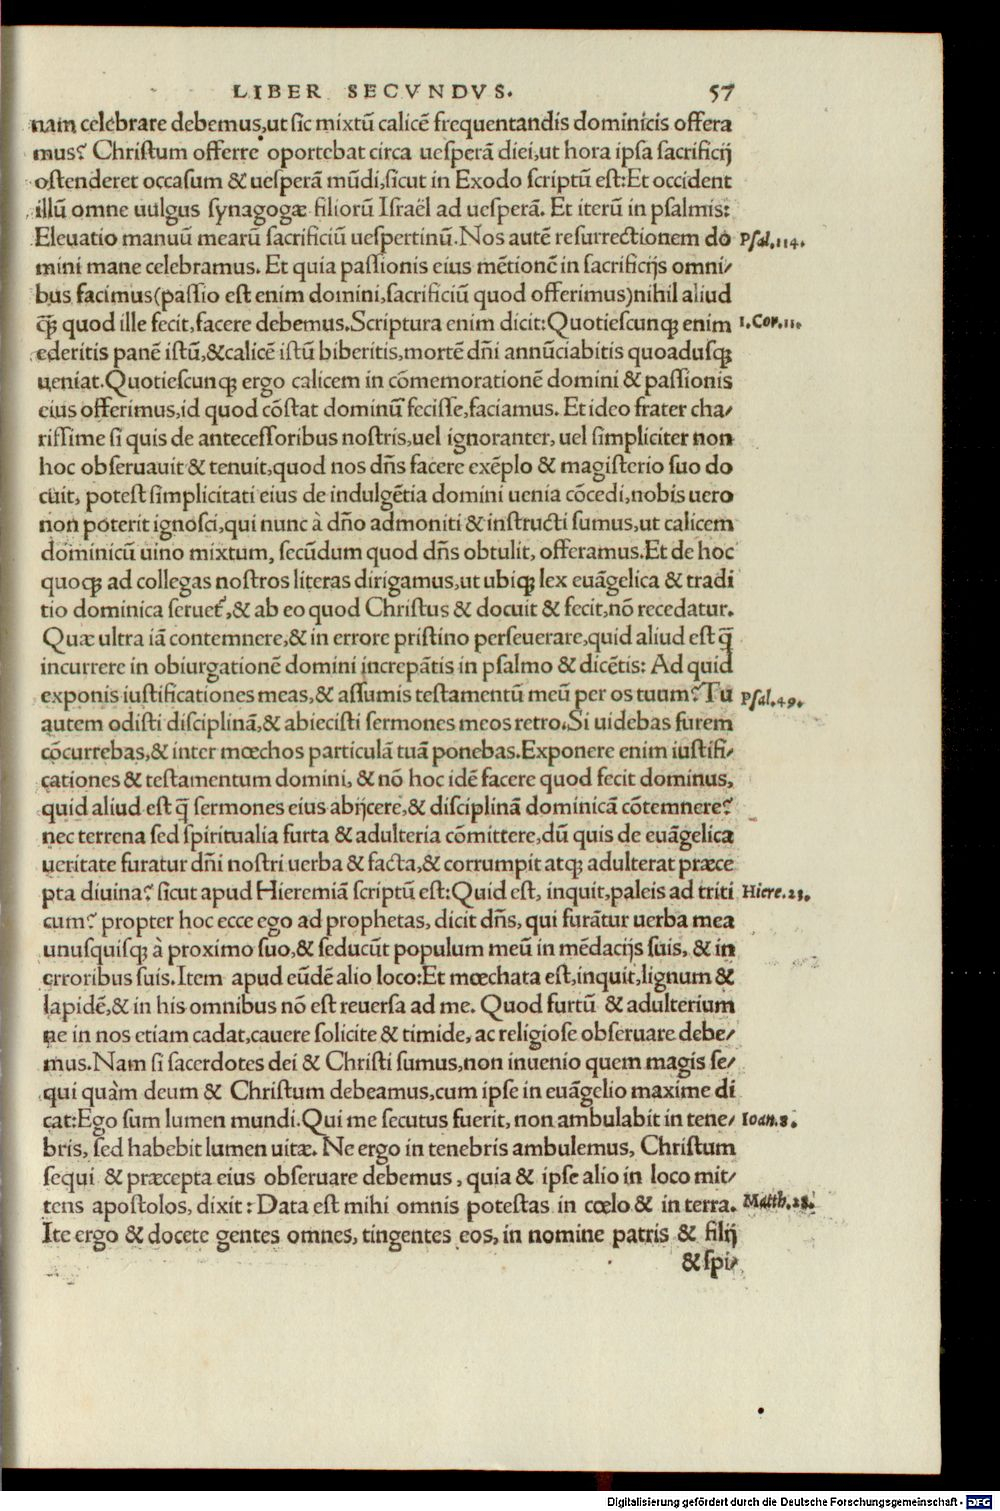 LIBER SECVNDVS. 57
nam celebrare debemus,ut sic mixtū calicē frequentandis dominicis offera
mus? Christum offerre oportebat circa uesperā diei,ut hora ipsa sacrificij
ostenderet occasum & uesperā mūdi,sicut in Exodo scriptū est:Et occident
illū omne uulgus synagogæ filiorū Israël ad uesperā. Et iterū in psalmis:
Eleuatio manuū mearū sacrificiū uespertinū.Nos autē resurrectionem do Psal.114.
mini mane celebramus. Et quia passionis eius mētionē in sacrificijs omni/
bus facimus(passio est enim domini,sacrificiū quod offerimus)nihil aliud
q̄ꝫ quod ille fecit,facere debemus.Scriptura enim dicit:Quotiescunqꝫ enim 1.Cor.11.
ederitis panē istū,&calicē istū biberitis,mortē dñi annūciabitis quoadusqꝫ
ueniat.Quotiescunqꝫ ergo calicem in cōmemorationē domini & passionis
eius offerimus,id quod cōstat dominū fecisse,faciamus. Et ideo frater cha/
rissime si quis de antecessoribus nostris,uel ignoranter, uel simpliciter non
hoc obseruauit & tenuit,quod nos dñs facere exēplo & magisterio suo do
cuit, potest simplicitati eius de indulgētia domini uenia cōcedi,nobis uero
non poterit ignosci,qui nunc à dño admoniti & instructi sumus,ut calicem
dominicū uino mixtum, secūdum quod dñs obtulit, offeramus.Et de hoc
quoqꝫ ad collegas nostros literas dirigamus,ut ubiqꝫ lex euāgelica & tradi
tio dominica seruet᷑,& ab eo quod Christus & docuit & fecit,nō recedatur.
Quæ ultra iā contemnere,& in errore pristino perseuerare,quid aliud est q̄
incurrere in obiurgationē domini increpātis in psalmo & dicētis: Ad quid
exponis iustificationes meas,& assumis testamentū meū per os tuum?Tu Psal.49.
autem odisti disciplinā,& abiecisti sermones meos retro.Si uidebas furem
cōcurrebas,& inter mœchos particulā tuā ponebas.Exponere enim iustifi/
cationes & testamentum domini, & nō hoc idē facere quod fecit dominus,
quid aliud est q̄ sermones eius abijcere,& disciplinā dominicā cōtemnere?
nec terrena sed spiritualia furta & adulteria cōmittere,dū quis de euāgelica
ueritate furatur dñi nostri uerba & facta,& corrumpit atqꝫ adulterat præce
pta diuina? sicut apud Hieremiā scriptū est:Quid est, inquit,paleis ad triti Hiere.23.
cum? propter hoc ecce ego ad prophetas, dicit dñs, qui furātur uerba mea
unusquisqꝫ à proximo suo,& seducūt populum meū in mēdacijs suis, & in
erroribus suis.Item apud eūdē alio loco:Et mœchata est,inquit,lignum &
lapidē,& in his omnibus nō est reuersa ad me. Quod furtū & adulterium
ne in nos etiam cadat,cauere solicite & timide, ac religiose obseruare debe/
mus.Nam si sacerdotes dei & Christi sumus,non inuenio quem magis se/
qui quàm deum & Christum debeamus,cum ipse in euāgelio maxime di
cat:Ego sum lumen mundi.Qui me secutus fuerit, non ambulabit in tene/ Ioan.8.
bris, sed habebit lumen uitæ. Ne ergo in tenebris ambulemus, Christum
sequi & præcepta eius obseruare debemus, quia & ipse alio in loco mit/
tens apostolos, dixit: Data est mihi omnis potestas in cœlo & in terra. Matth.28.
Ite ergo & docete gentes omnes, tingentes eos, in nomine patris & filij
& spi/
Digitalisierung gefördert durch die Deutsche Forschungsgemeinschaft - DFG